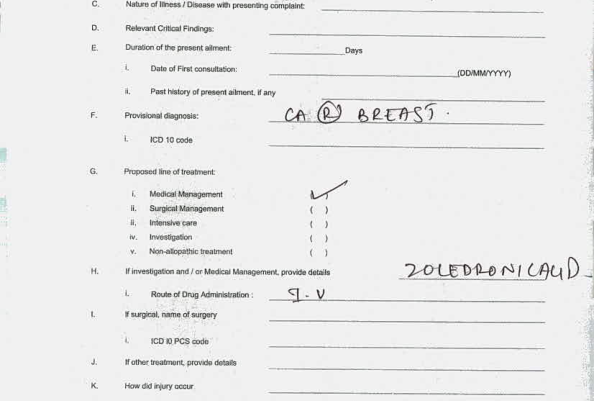 C. Nature of Illness / Disease with presenting complaint:
D. Relevant Critical Findings:
E. Duration of the present ailment: Days
i. Date of First consultation: (DD/MM/YYYY)
ii. Past history of present ailment, if any
F. Provisional diagnosis: CA (R) BREAST.
i. ICD 10 code
G. Proposed line of treatment:
i. Medical Management (✓)
ii. Surgical Management ( )
ii. Intensive care ( )
iv. Investigation ( )
v. Non-allopathic treatment ( )
H. If investigation and / or Medical Management, provide details ZOLEDRONICACID
i. Route of Drug Administration : I.V
I. If surgical, name of surgery
i. ICD I0 PCS code
J. If other treatment, provide details
K. How did injury occur